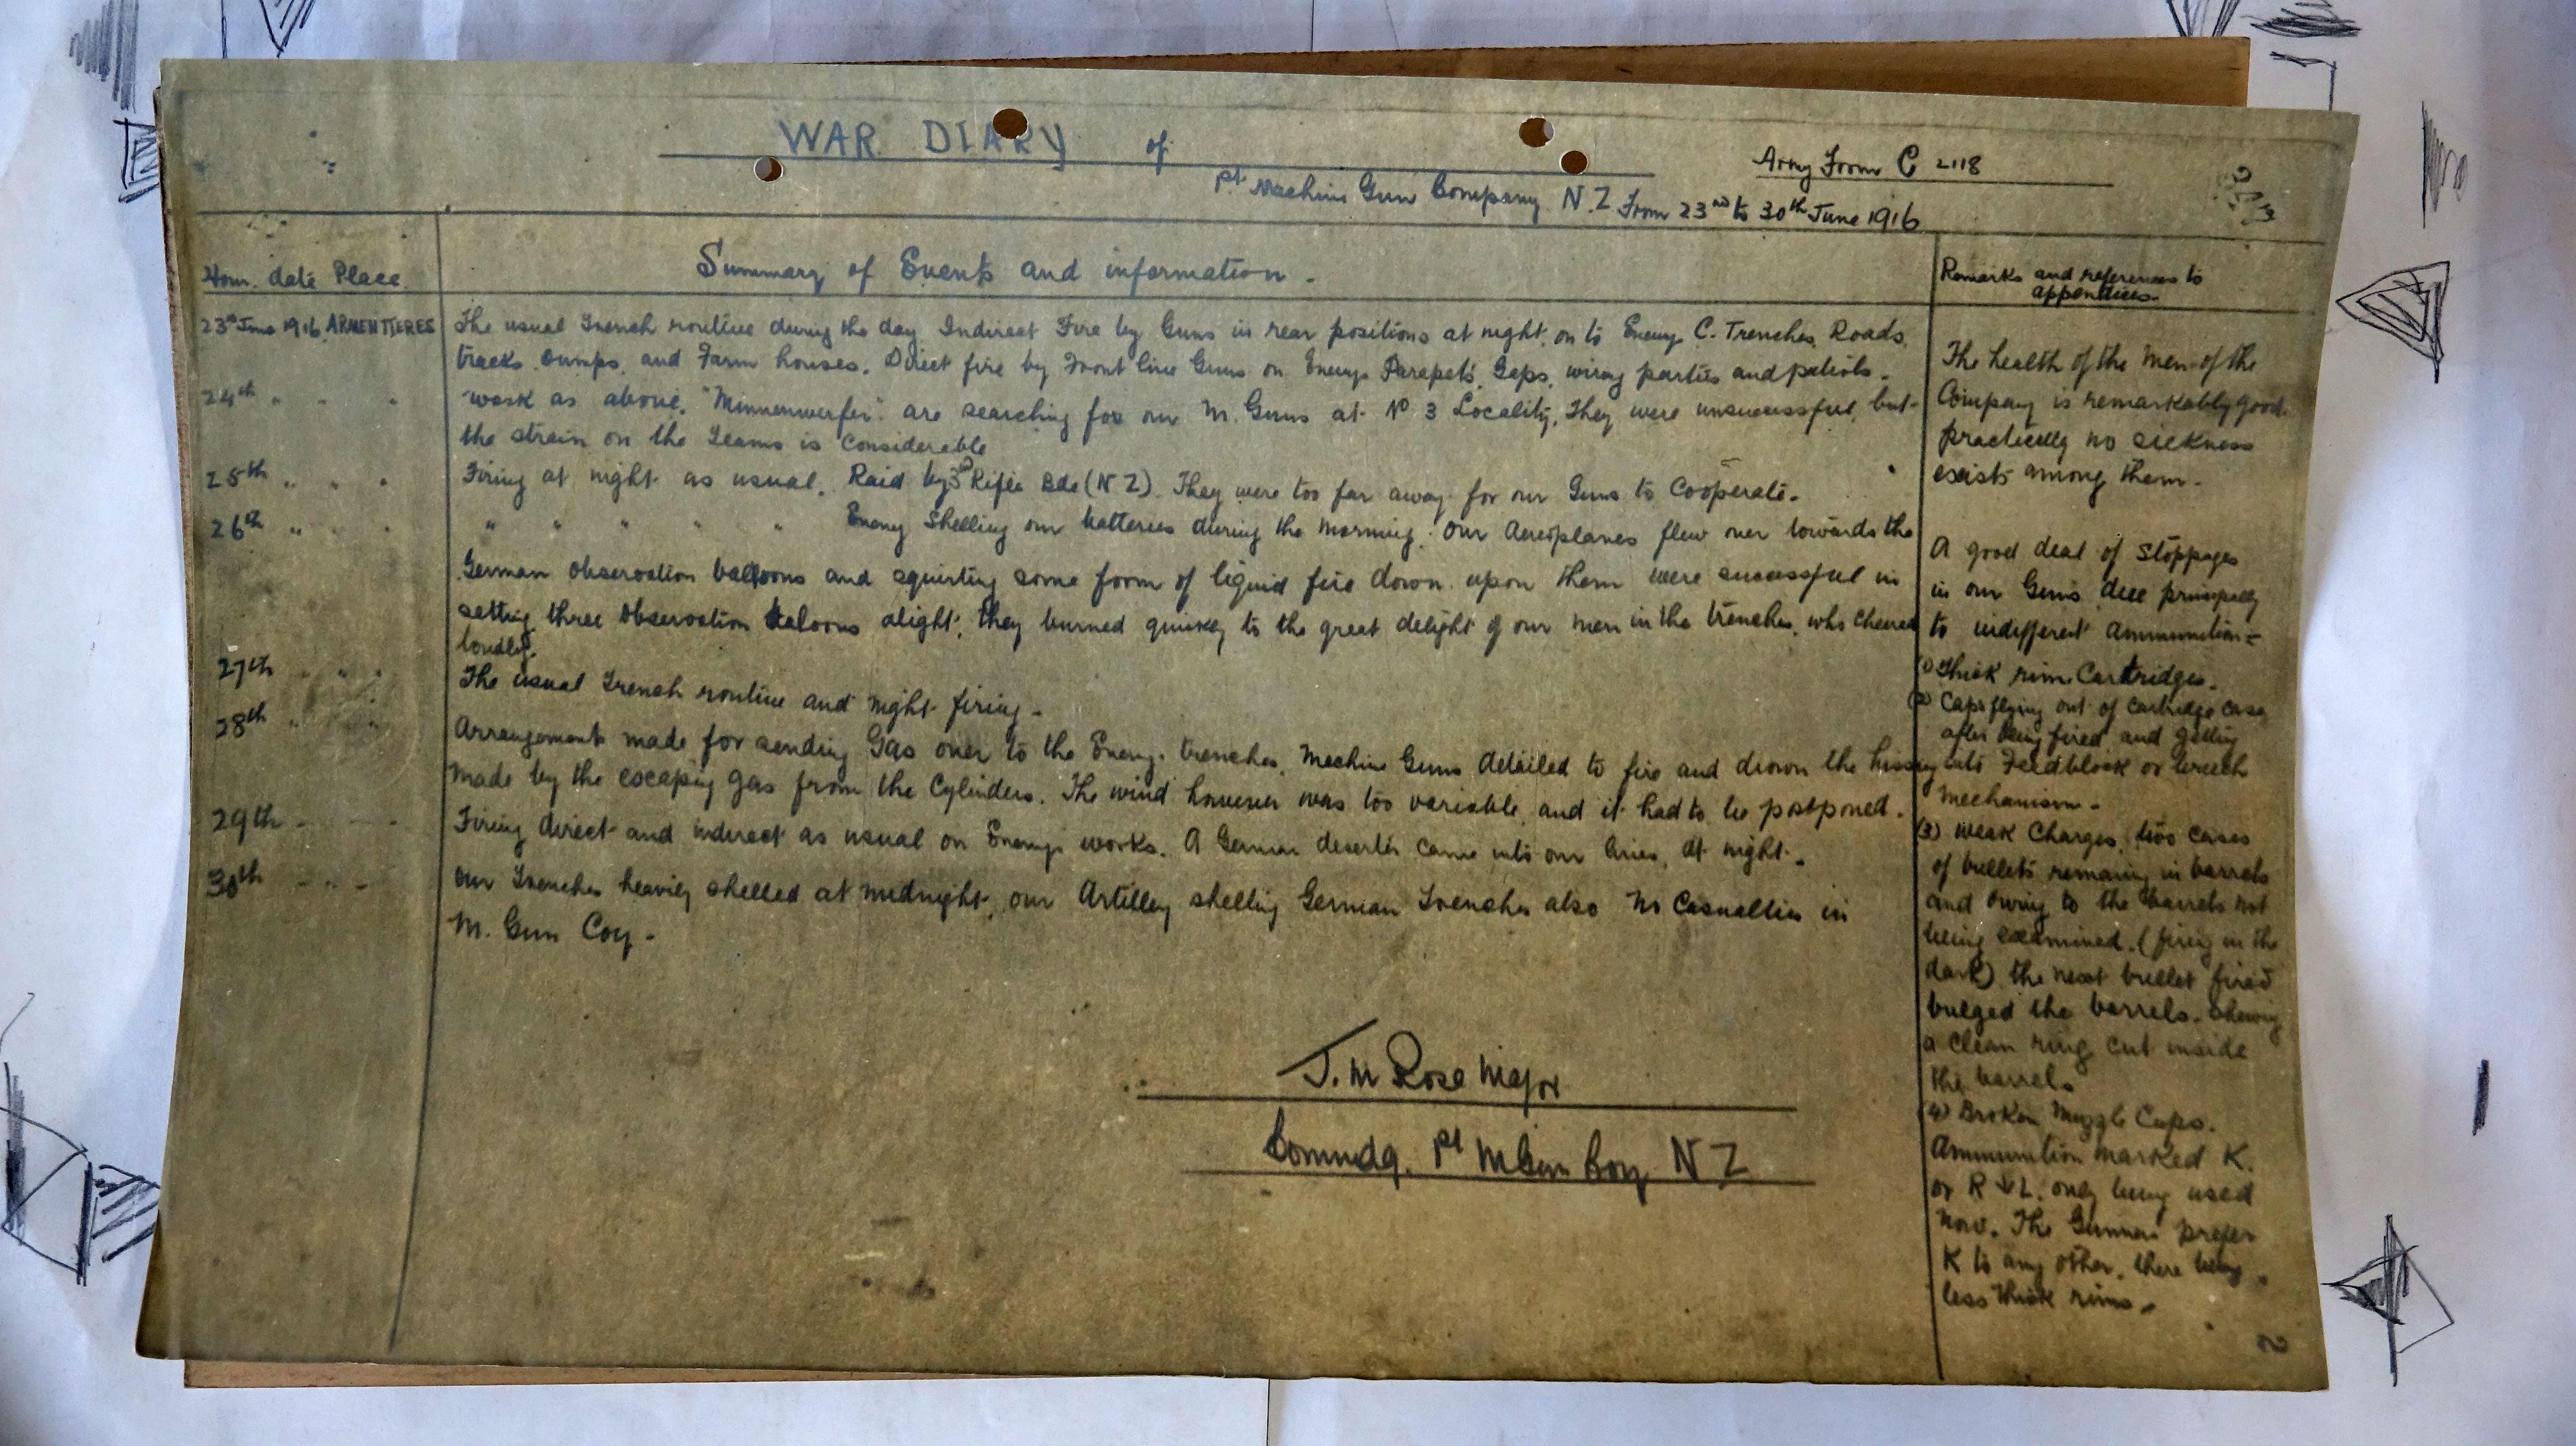 WAR DIARY of
Army From C 2118
Pt Machine Gun Company N.Z From 23rd to 30th June 1916
Hour. date Place
Summary of Events and information -
Remarks and references to
appendices-
23rd June 1916. ARMENTIERES
The usual Trench routine during the day Indirect Fire by Guns in rear positions at night, on to Enemys C. Trenches, Roads,
tracks Dumps, and Farm houses. Direct fire by Front line Guns on Enemys Parapets, Gaps, wiring parties and patrols -
24th " " "
work as above. "Minnenwerfer" are searching for our M. Guns at No 3 Locality, They were unsuccessful, but-
the strain on the Teams is considerable
25th " " "
Firing at night as usual. Raid by 3rd Rifle Bde (N Z). They were too far away for our Guns to Cooperate.
26th " " "
" " " " " Enemy Shelling our batteries during the Morning. Our Aeroplanes flew over towards the
German observation balloons and squirting some form of liquid fire down upon them were sucessful in
setting three observation baloons alight, they burned quickly to the great delight of our men in the trenches, who cheered
loudly.
27th " " "
The usual Trench routine and night firing -
28th " "
Arrangements made for sending Gas over to the Enemys trenches, Machine Guns detailed to fire and drown the hissing
made by the escaping gas from the Cylinders. The wind however was too variable, and it had to be postponed.
29th - -
Firing direct and indirect as usual on Enemys works. A German deserter came into our lines, at night.
30th - " -
Our Trenches heavily shelled at midnight, our Artillery shelling German Trenches also No Casualties in
M. Gun Coy -
J. M Rose Major
Commdg. Pt M Gun Coy N Z
The health of the men of the
Company is remarkably good.
practically no sickness
exists among them -
A good deal of Stoppages
in our Guns due principally
to indifferent ammunition =
(1) Thick rim Cartridges.
(2) Caps flying out of cartridge case
after being fired and getting
into Feedblock or breech
mechanism -
(3) weak Charges, two cases
of bullets remaining in barrels
and owing to the barrels not
being examined, (firing in the
dark) the next bullet fired
bulged the barrels. Shewing
a clean ring cut inside
the barrels
(4) Broken Muzzle Cups.
Ammunition marked K.
or R ↓ L. only being used
now. The Gunners prefer
K to any other, there being
less thick rims -
2